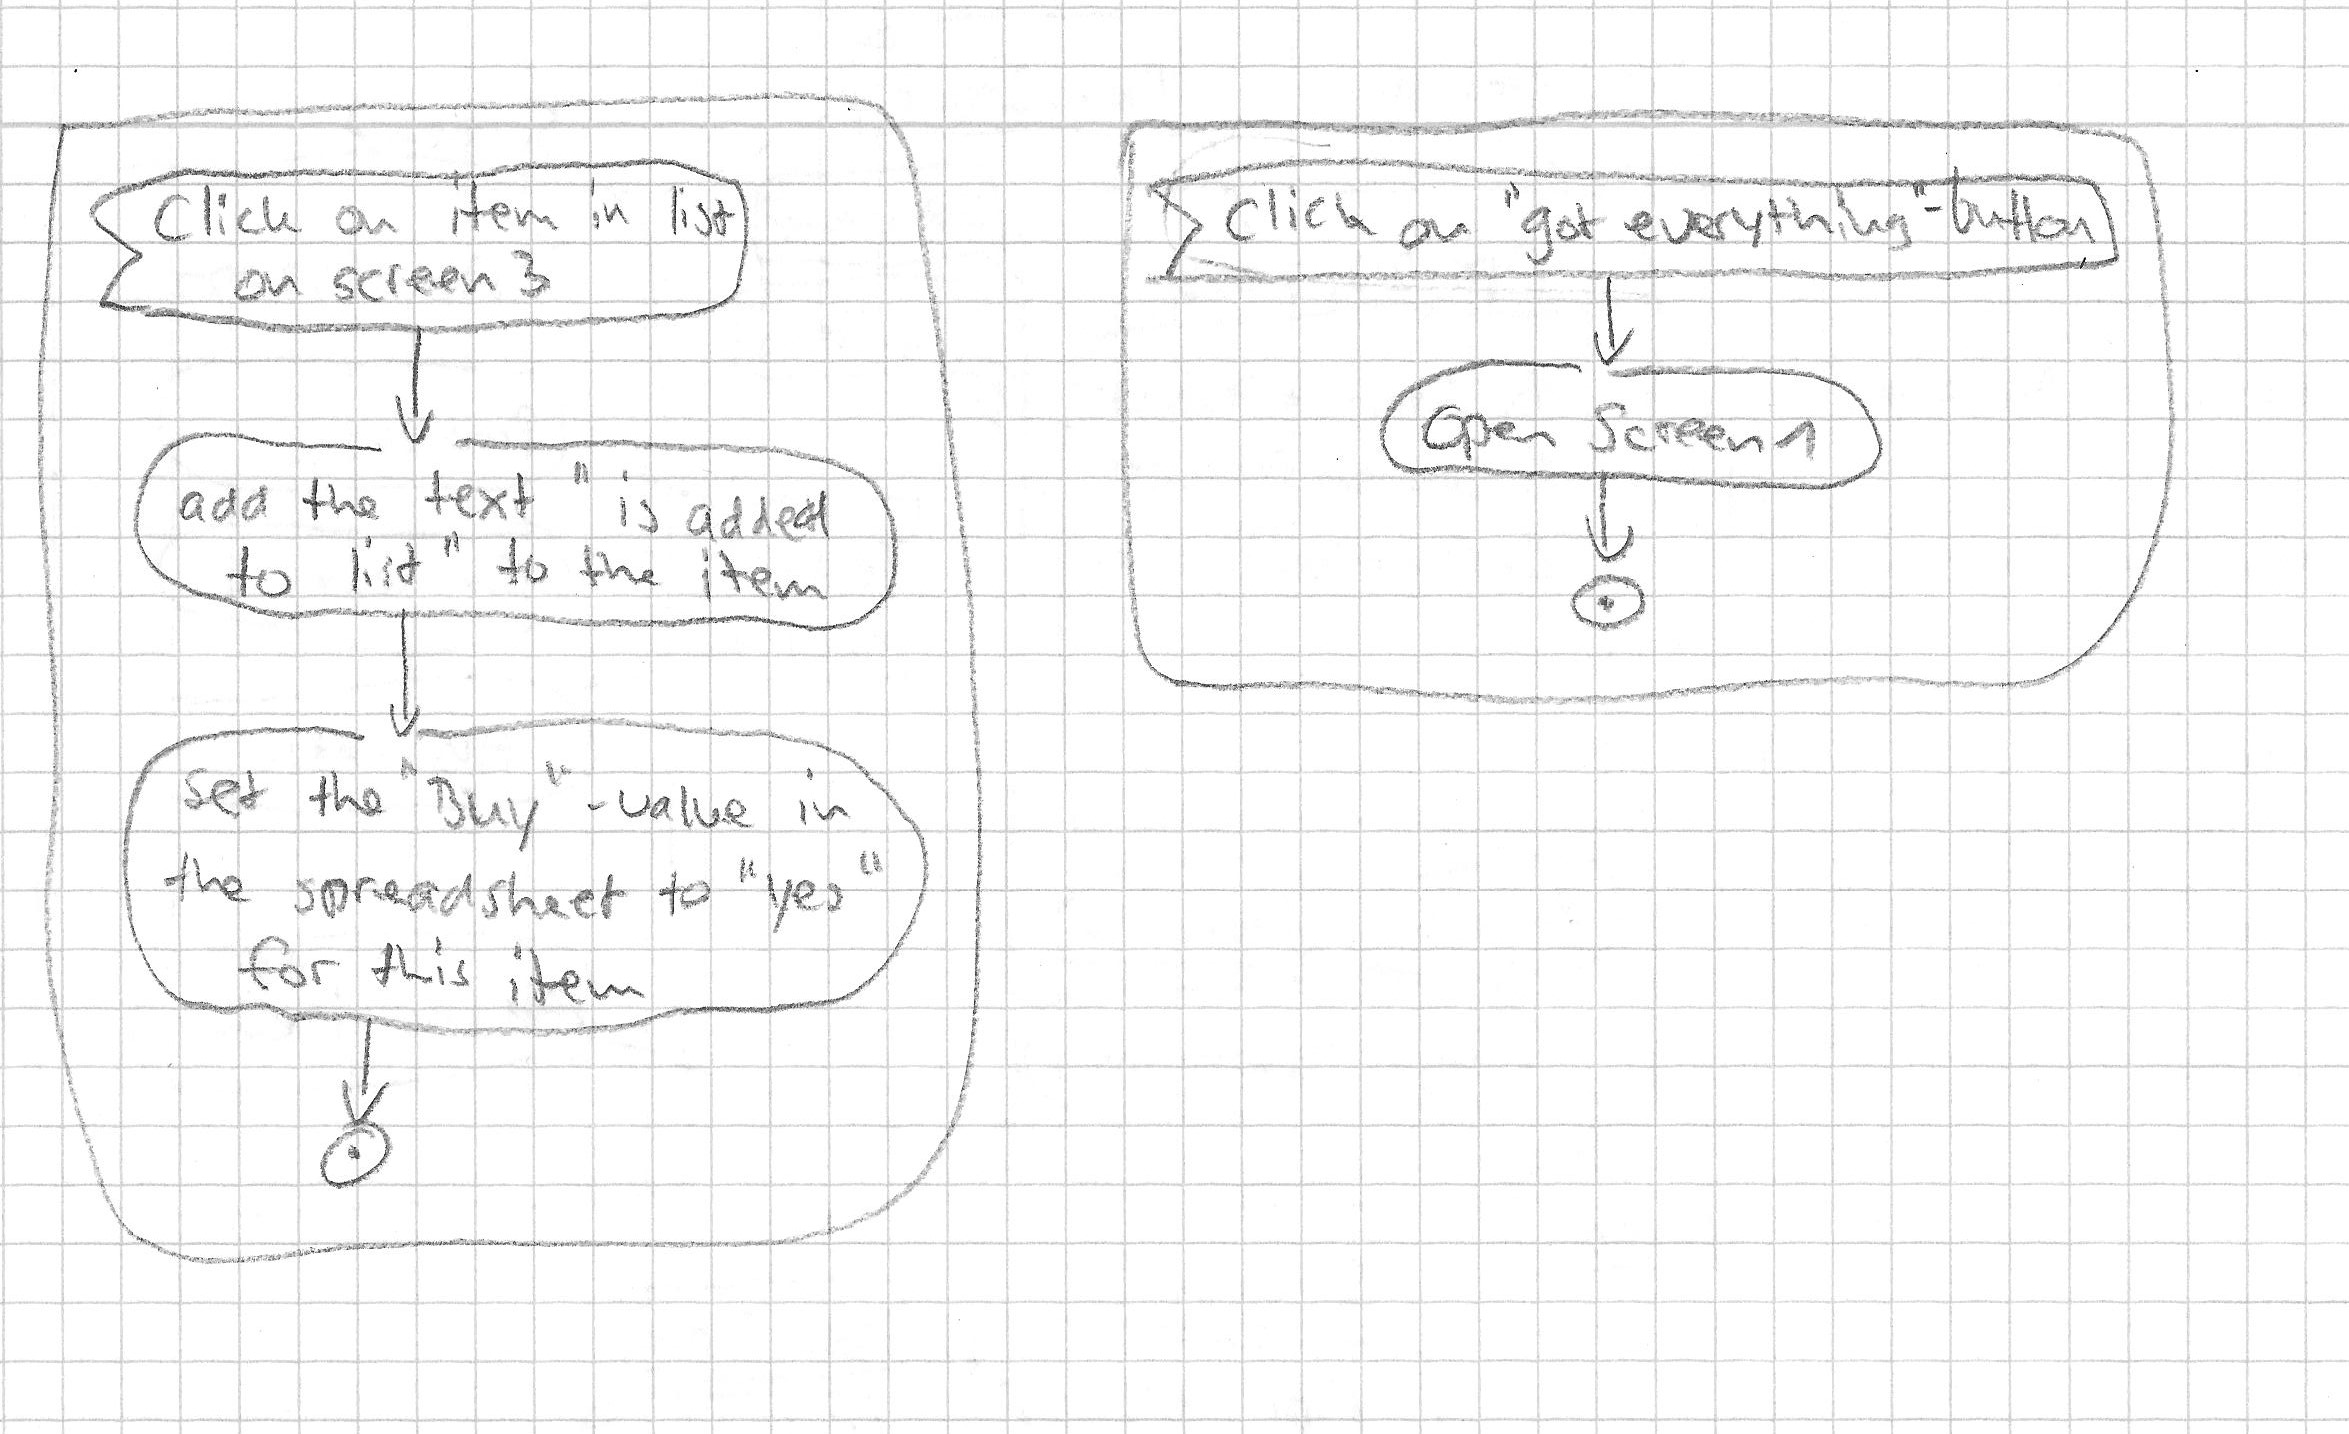 Click on item in list
on screen 3
add the text "is added
to list" to the item
set the "Buy"-value in
the spreadsheet to "yes"
for this item
Click on "got everything"-button
Open Screen 1